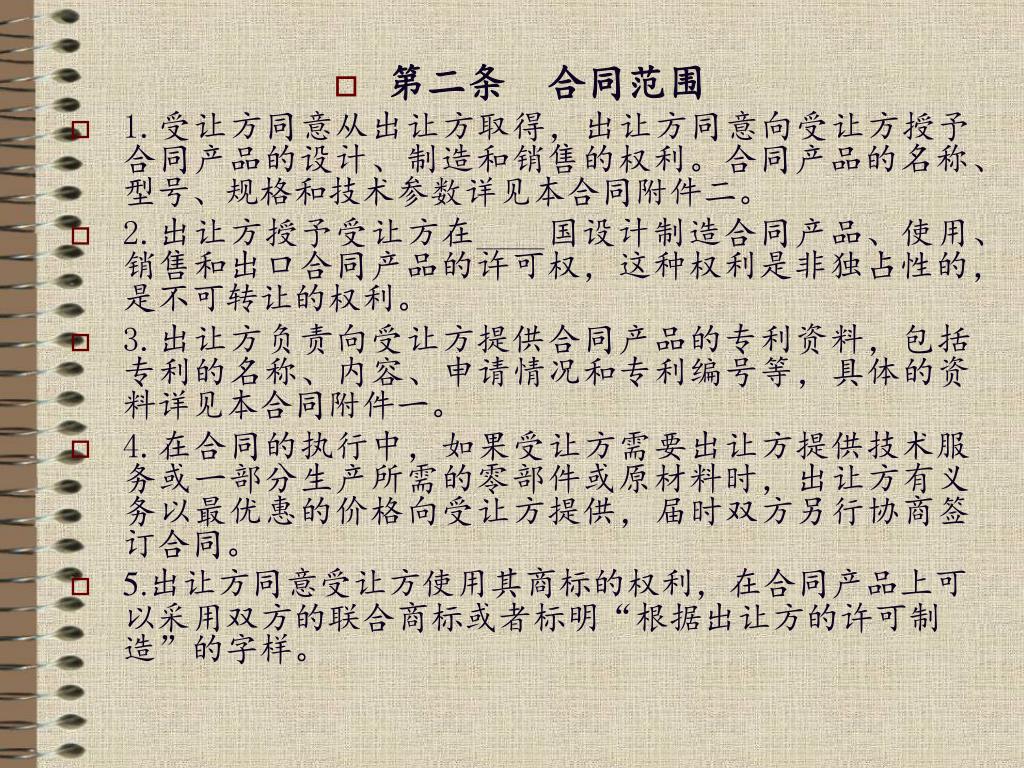 第二条 合同范围
1. 受让方同意从出让方取得，出让方同意向受让方授予
合同产品的设计、制造和销售的权利。合同产品的名称、
型号、规格和技术参数详见本合同附件二。
2. 出让方授予受让方在____国设计制造合同产品、使用、
销售和出口合同产品的许可权，这种权利是非独占性的，
是不可转让的权利。
3. 出让方负责向受让方提供合同产品的专利资料，包括
专利的名称、内容、申请情况和专利编号等，具体的资
料详见本合同附件一。
4. 在合同的执行中，如果受让方需要出让方提供技术服
务或一部分生产所需的零部件或原材料时，出让方有义
务以最优惠的价格向受让方提供，届时双方另行协商签
订合同。
5.出让方同意受让方使用其商标的权利，在合同产品上可
以采用双方的联合商标或者标明“根据出让方的许可制
造”的字样。